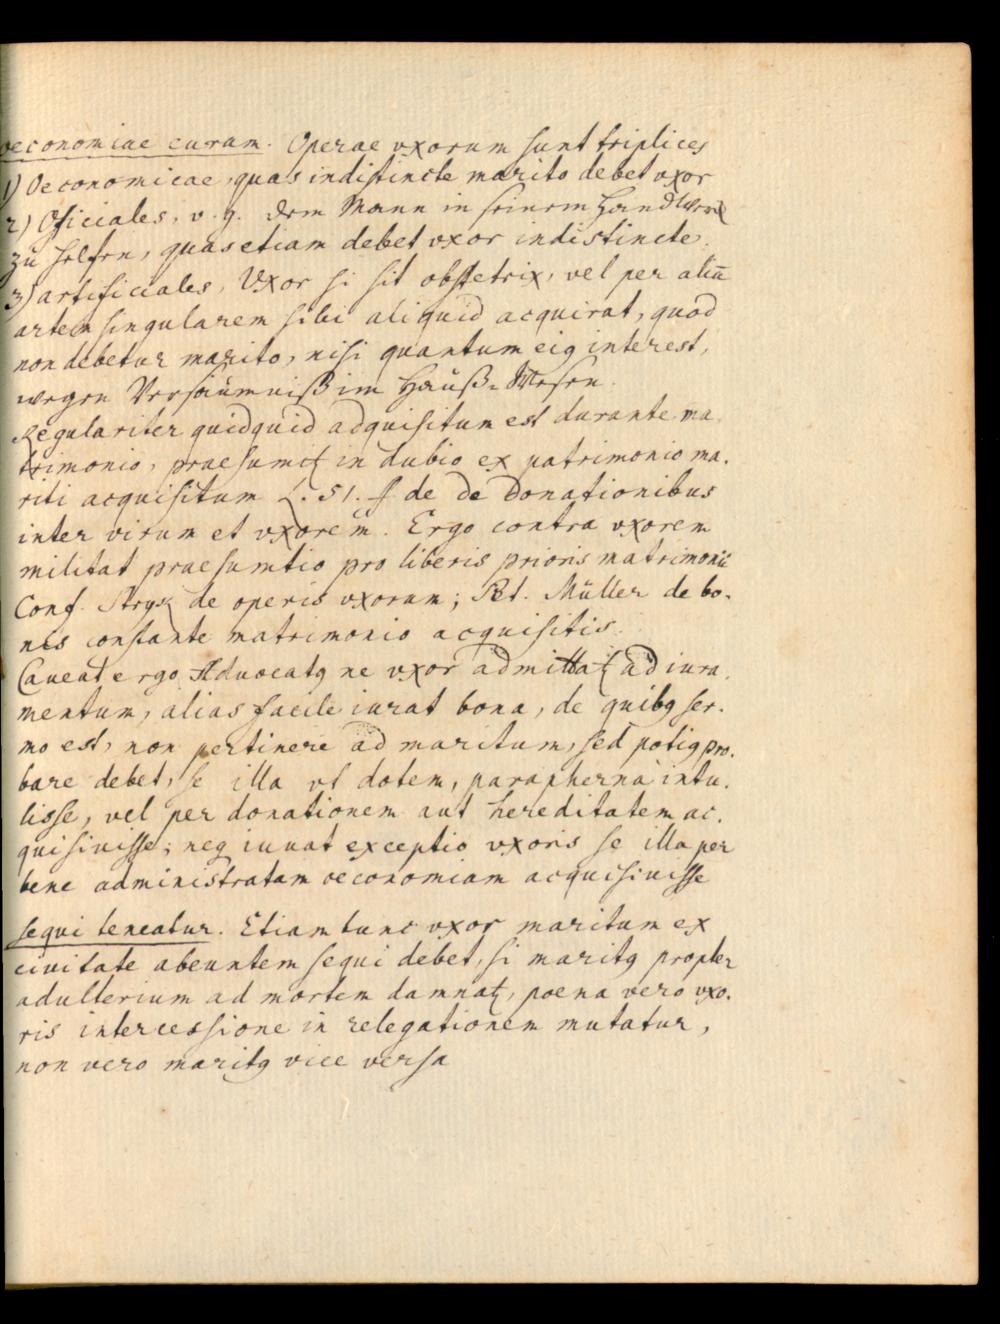 oeconomiae curam. Operae vxorum sunt triplices
1) Oeconomicae, quas indistincte marito debet vxor
2) Officiales, v. g. dem Mann in seinem Handwerck
zu helfen, quas etiam debet vxor indistincte.
3) artificiales, Vxor si sit obstetrix, vel per aliā
artem singularem sibi aliquid acquirat, quod
non debetur marito, nisi quantum eiꝰ interest,
wegen Versäumniß im Hauß-Wesen.
Regulariter quidquid adquisitum est durante ma-
trimonio, praesumitꝛ in dubio ex patrimonio ma-
riti acquisitum L. 51. ff de de Donationibus
inter virum et vxorem. Ergo contra vxorem
militat praesumtio pro liberis prioris matrimonii
Conf. Stryk de operis vxorum; Pet. Müller de bo-
nis constante matrimonio acquisitis.
Caveat ergo Advocatꝰ ne vxor admittatꝛ ad iura-
mentum, alias facile iurat bona, de quibꝰ ser-
mo est, non pertinere ad maritum, sed potiꝰ pro-
bare debet, se illa vt dotem, parapherna intu-
lisse, vel per donationem aut hereditatem ac-
quisiuisse; neq iuuat exceptio vxoris se illa per
bene administratam oeconomiam acquisiuisse
sequi teneatur. Etiam tunc vxor maritum ex
ciuitate abeuntem sequi debet, si maritꝰ propter
adulterium ad mortem damnatꝛ, poena vero vxo-
ris intercessione in relegationem mutatur,
non vero maritꝰ vice versa